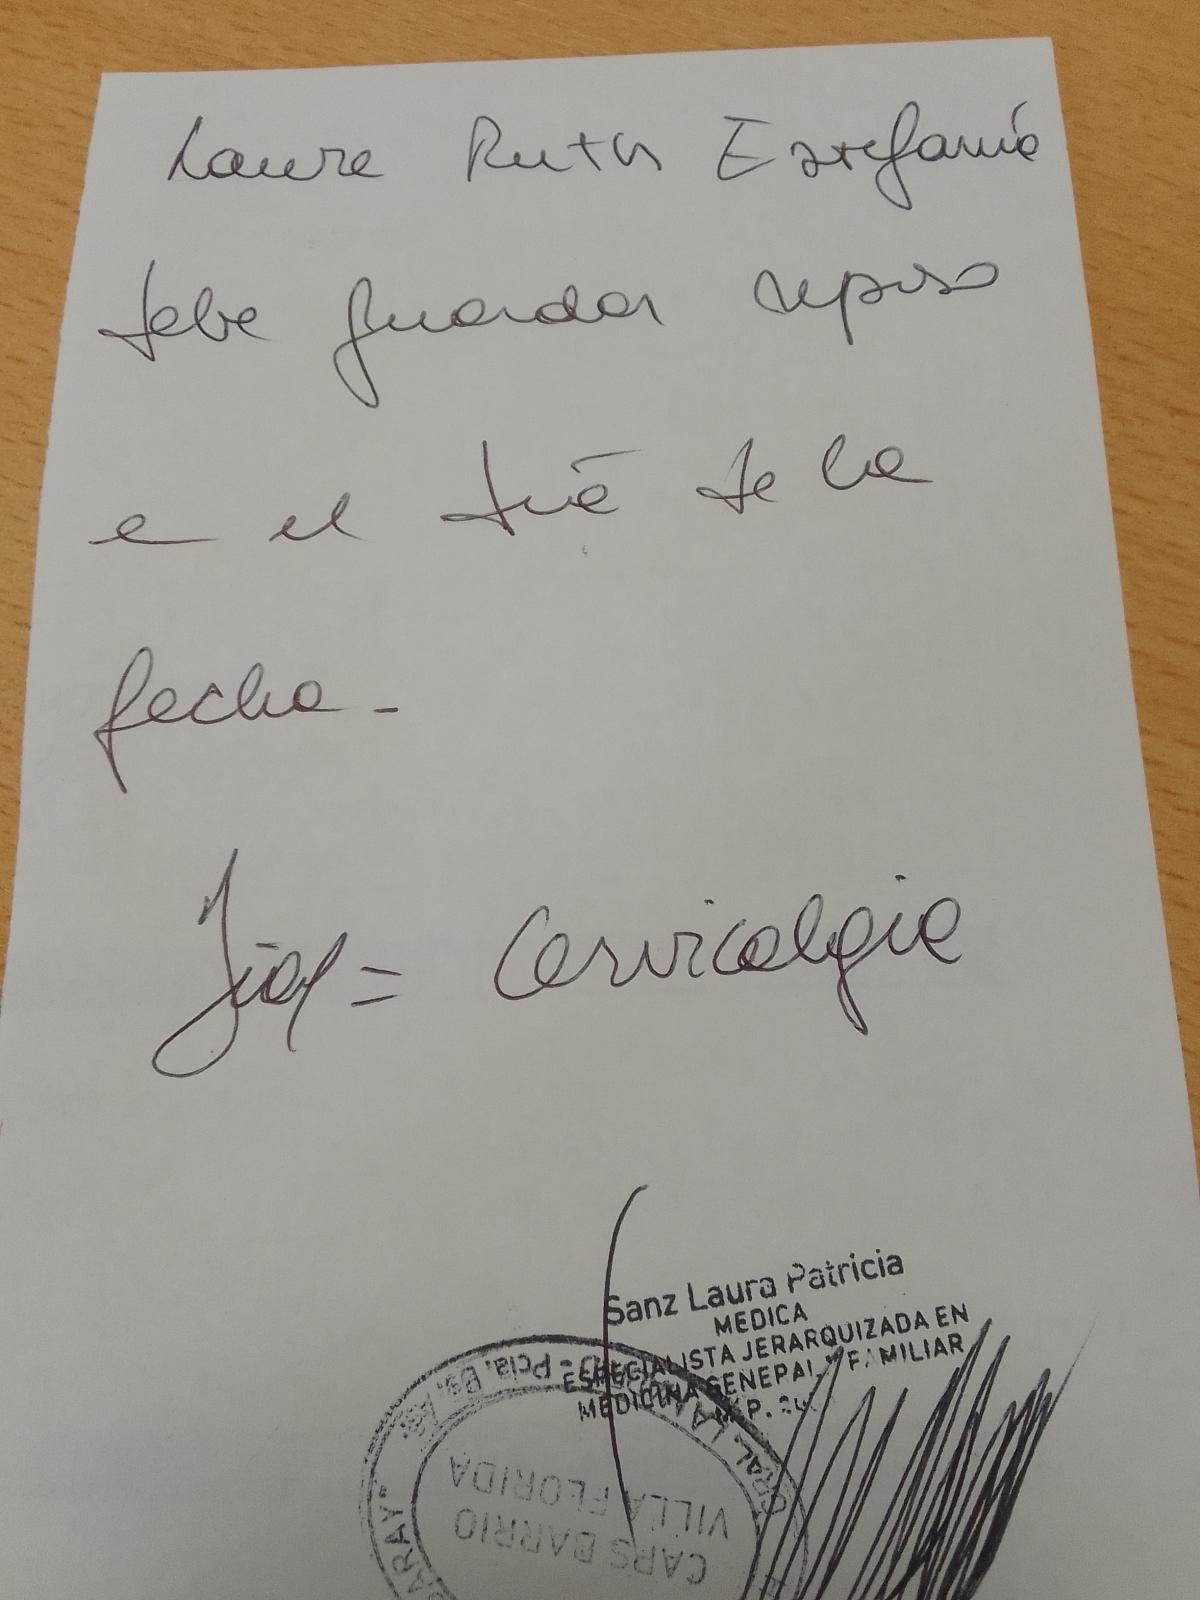 Laura Ruth Estefanía
debe guardar reposo
en el día de la
fecha -
Diag = Cervicalgia
Sanz Laura Patricia
MEDICA
ESPECIALISTA JERARQUIZADA EN
MEDICINA GENERAL Y FAMILIAR
M.P.
Pcia. Bs. As.
GRAL. LA
CAPS BARRIO
VILLA FLORIDA